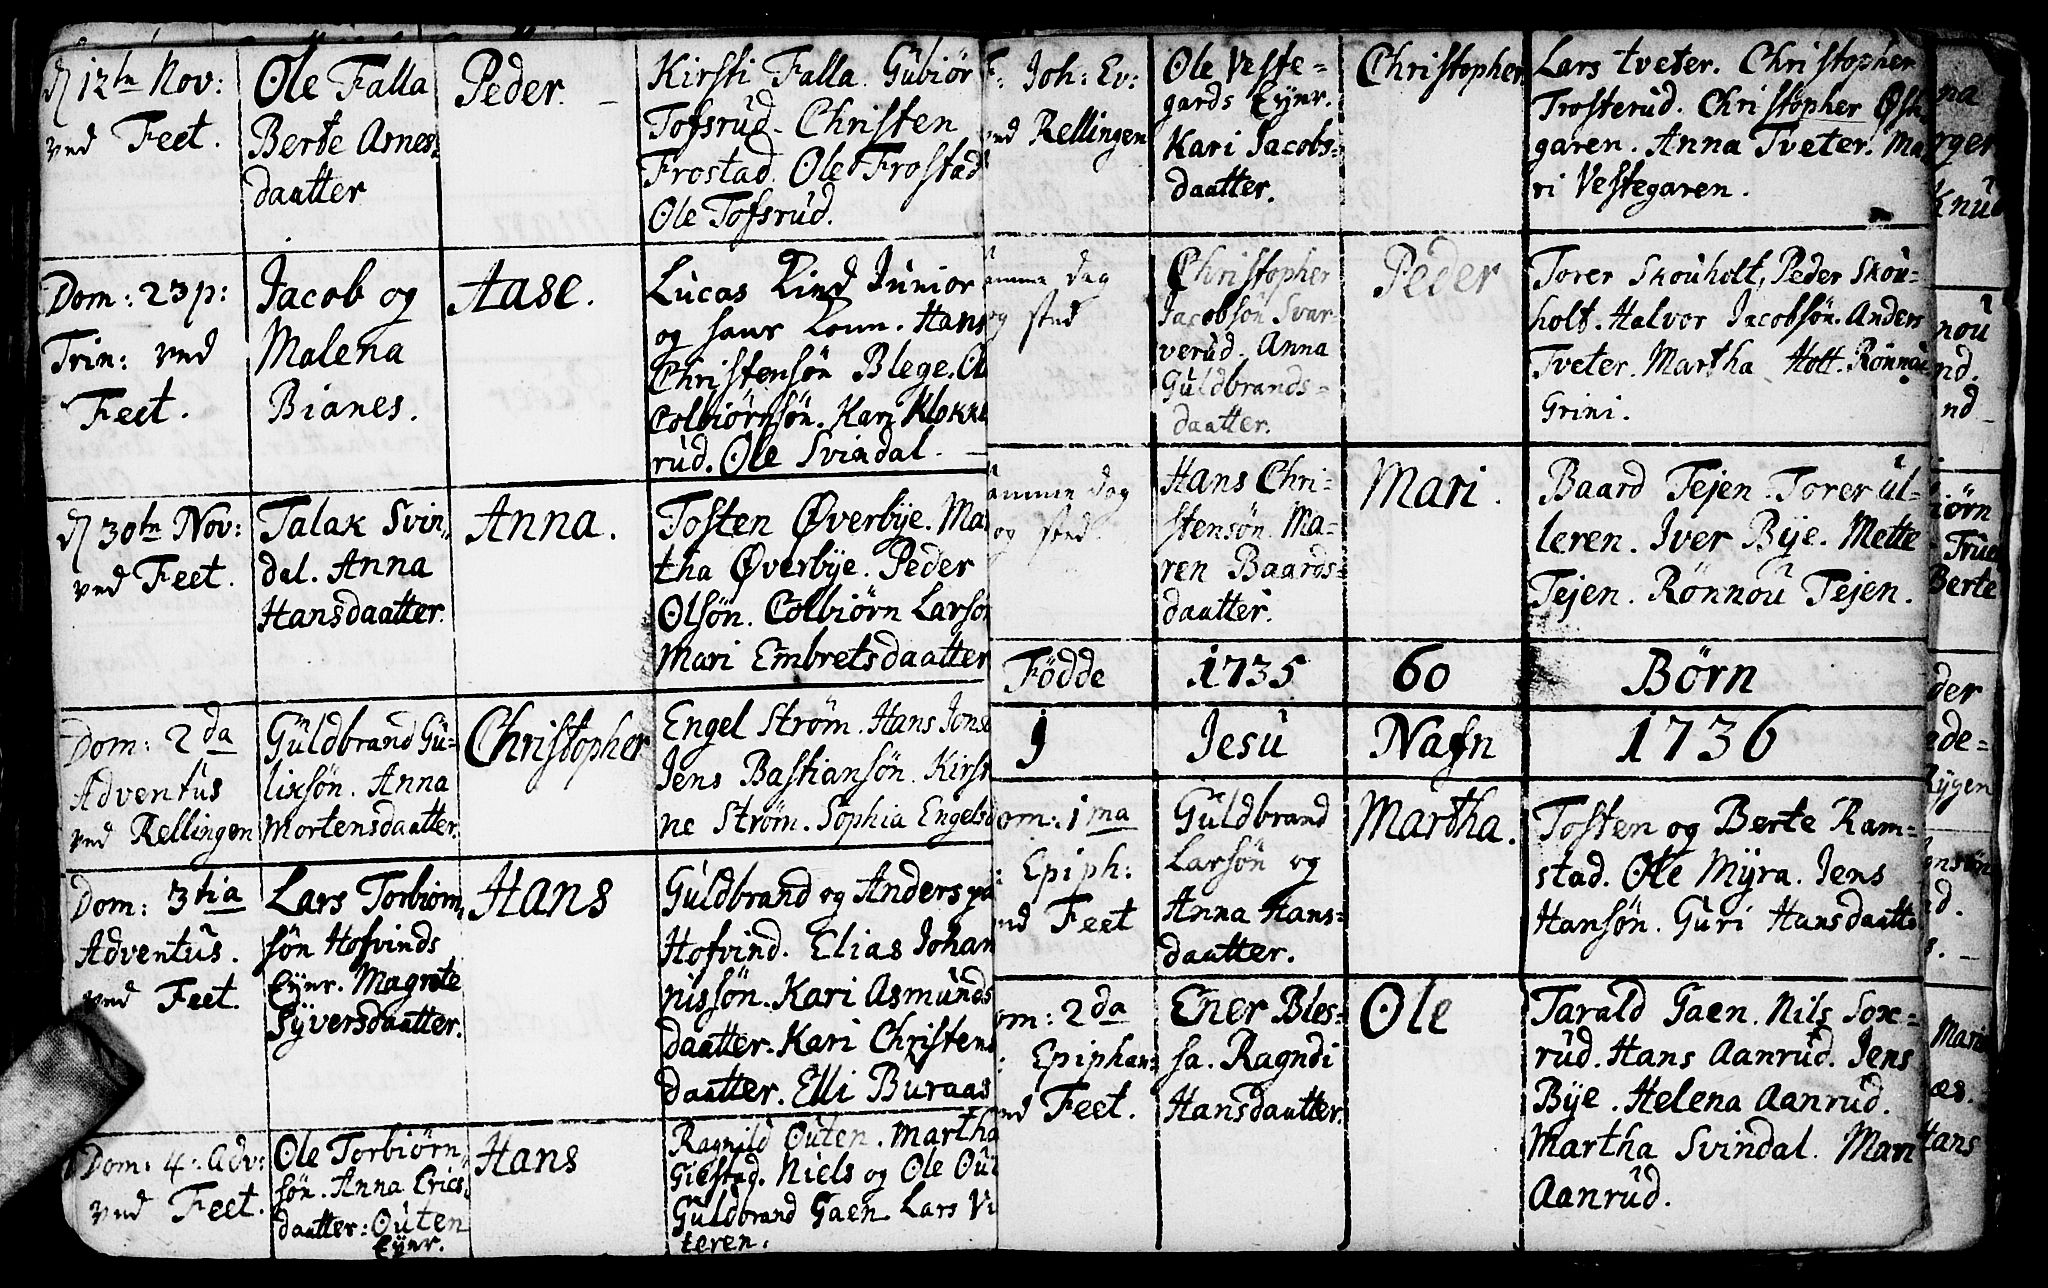 d 12te Nov:
ved Feet.
Ole Falla
Berte Arnes-
daatter
Peder. –
Kirsti Falla. Gubiör
Tofsrud. Christen
Frostad. Ole Frostad
Ole Tofsrud.
Dom: 23 p:
Trin: ved
Feet.
Jacob og
Malena
Bianes.
Aase.
Lucas Lind Junior
og hans Kone. Hans
Christensön Blege.
Colbiörnsön. Kari Klokke
rud. Ole Svindal. –
d 30te Nov:
ved Feet.
Talak Svin-
dal. Anna
Hansdaatter.
Anna.
Tosten Øverbye. Mar
tha Øverbye. Peder
Olsön. Colbiörn Larsö
Mari Embretsdaatter
Dom: 2da
Adventus
ved Rellingen
Guldbrand Gu-
lixsön. Anna
Mortensdaatter.
Christopher
Engel Ström. Hans Jons
Jens Bastiansön. Kirst
ne Ström. Sophia Engelsd
Dom: 3tia
Adventus.
ved Feet.
Lars Torbiörn-
sön Hofvinds
Eyer. Magrete
Syversdaatter.
Hans
Guldbrand og Anders paa
Hofvind. Elias Johan
nissön. Kari Asmunds
daatter. Kari Christens
daatter. Elli Buraas
Dom: 4: Adv:
ved Feet.
Ole Torbiörn-
sön. Anna Erics-
daatter: Outen
Eyer.
Hans
Ragnild Outen. Martha
Giestad. Niels og Ole Out
Guldbrand Gaen. Lars Vi
teren.
F: Joh: Ev:
ved Rellingen
Ole Veste-
gards Eyer.
Kari Jacobs-
daatter.
Christopher
Lars Tveter. Christopher
Trosterud. Christopher Øste-
garen. Anna Tveter. Ma-
ri Vestegaren.
Samme dag
og sted
Christopher
Jacobsön Svar-
verud. Anna
Guldbrands-
daatter.
Peder
Torer Skouholt, Peder Skou-
holt. Halvor Jacobsön. Anders
Tveter. Martha Holt. Rönnou
Grini.
Samme dag
og sted.
Hans Chri-
stensön. Ma-
ren Baards-
daatter.
Mari.
Baard Tejen. Torer Ul-
leren. Iver Bye. Mette
Tejen. Rönnou Tejen.
Födde 1735 60 Börn
J Jesu Nafn 1736
Dom: 1ma
: Epiph:
ved Feet
Guldbrand
Larsön og
Anna Hans-
daatter.
Martha.
Tosten og Berte Ram-
stad. Ole Myra. Jens
Hansön. Guri Hansdaatte
Dom: 2da
: Epiphan:
ved Feet.
Ener Bles-
sa. Ragndi
Hansdaatter.
Ole
Tarald Gaen. Nils Sox-
rud. Hans Aanrud. Jens
Bye. Helena Aanrud.
Martha Svindal. Mari
Aanrud.